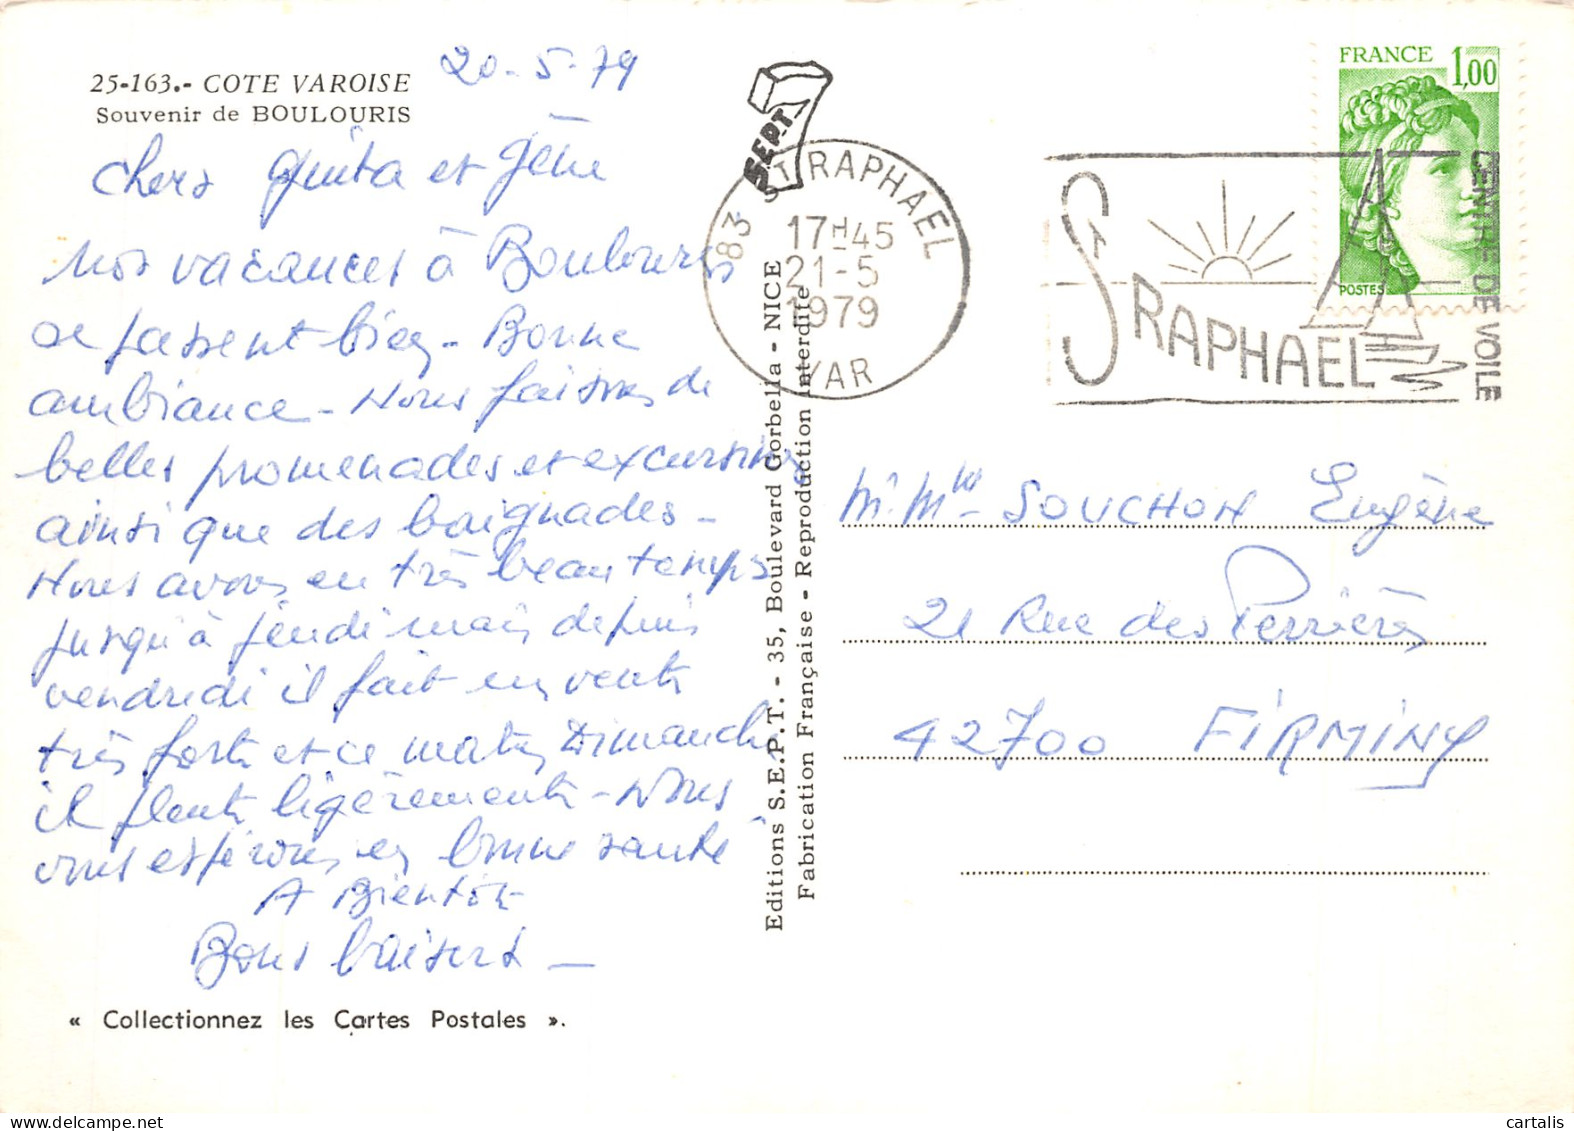 25-163.- COTE VAROISE
Souvenir de BOULOURIS
20-5-79
Chers Guita et Gène
Nos vacances à Boulouris
se passent bien - Bonne
ambiance - Nous faisons de
belles promenades et excursions
ainsi que des baignades -
Nous avons eu très beau temps
jusqu'à jeudi mais depuis
vendredi il fait un vent
très fort et ce matin Dimanche
il pleut légèrement - Nous
vous espérons en bonne santé
A Bientôt
Bons baisers -
« Collectionnez les Cartes Postales ».
SEPT 7
Editions S.E.P.T. - 35, Boulevard Gorbella - NICE
Fabrication Française - Reproduction interdite
83 ST RAPHAEL
17H45
21-5
1979
VAR
ST RAPHAEL
CENTRE DE VOILE
FRANCE 1,00
POSTES
Mr Mme SOUCHON Eugène
21 Rue des Perrières
42700 FIRMINY
cartalis
www.delcampe.net